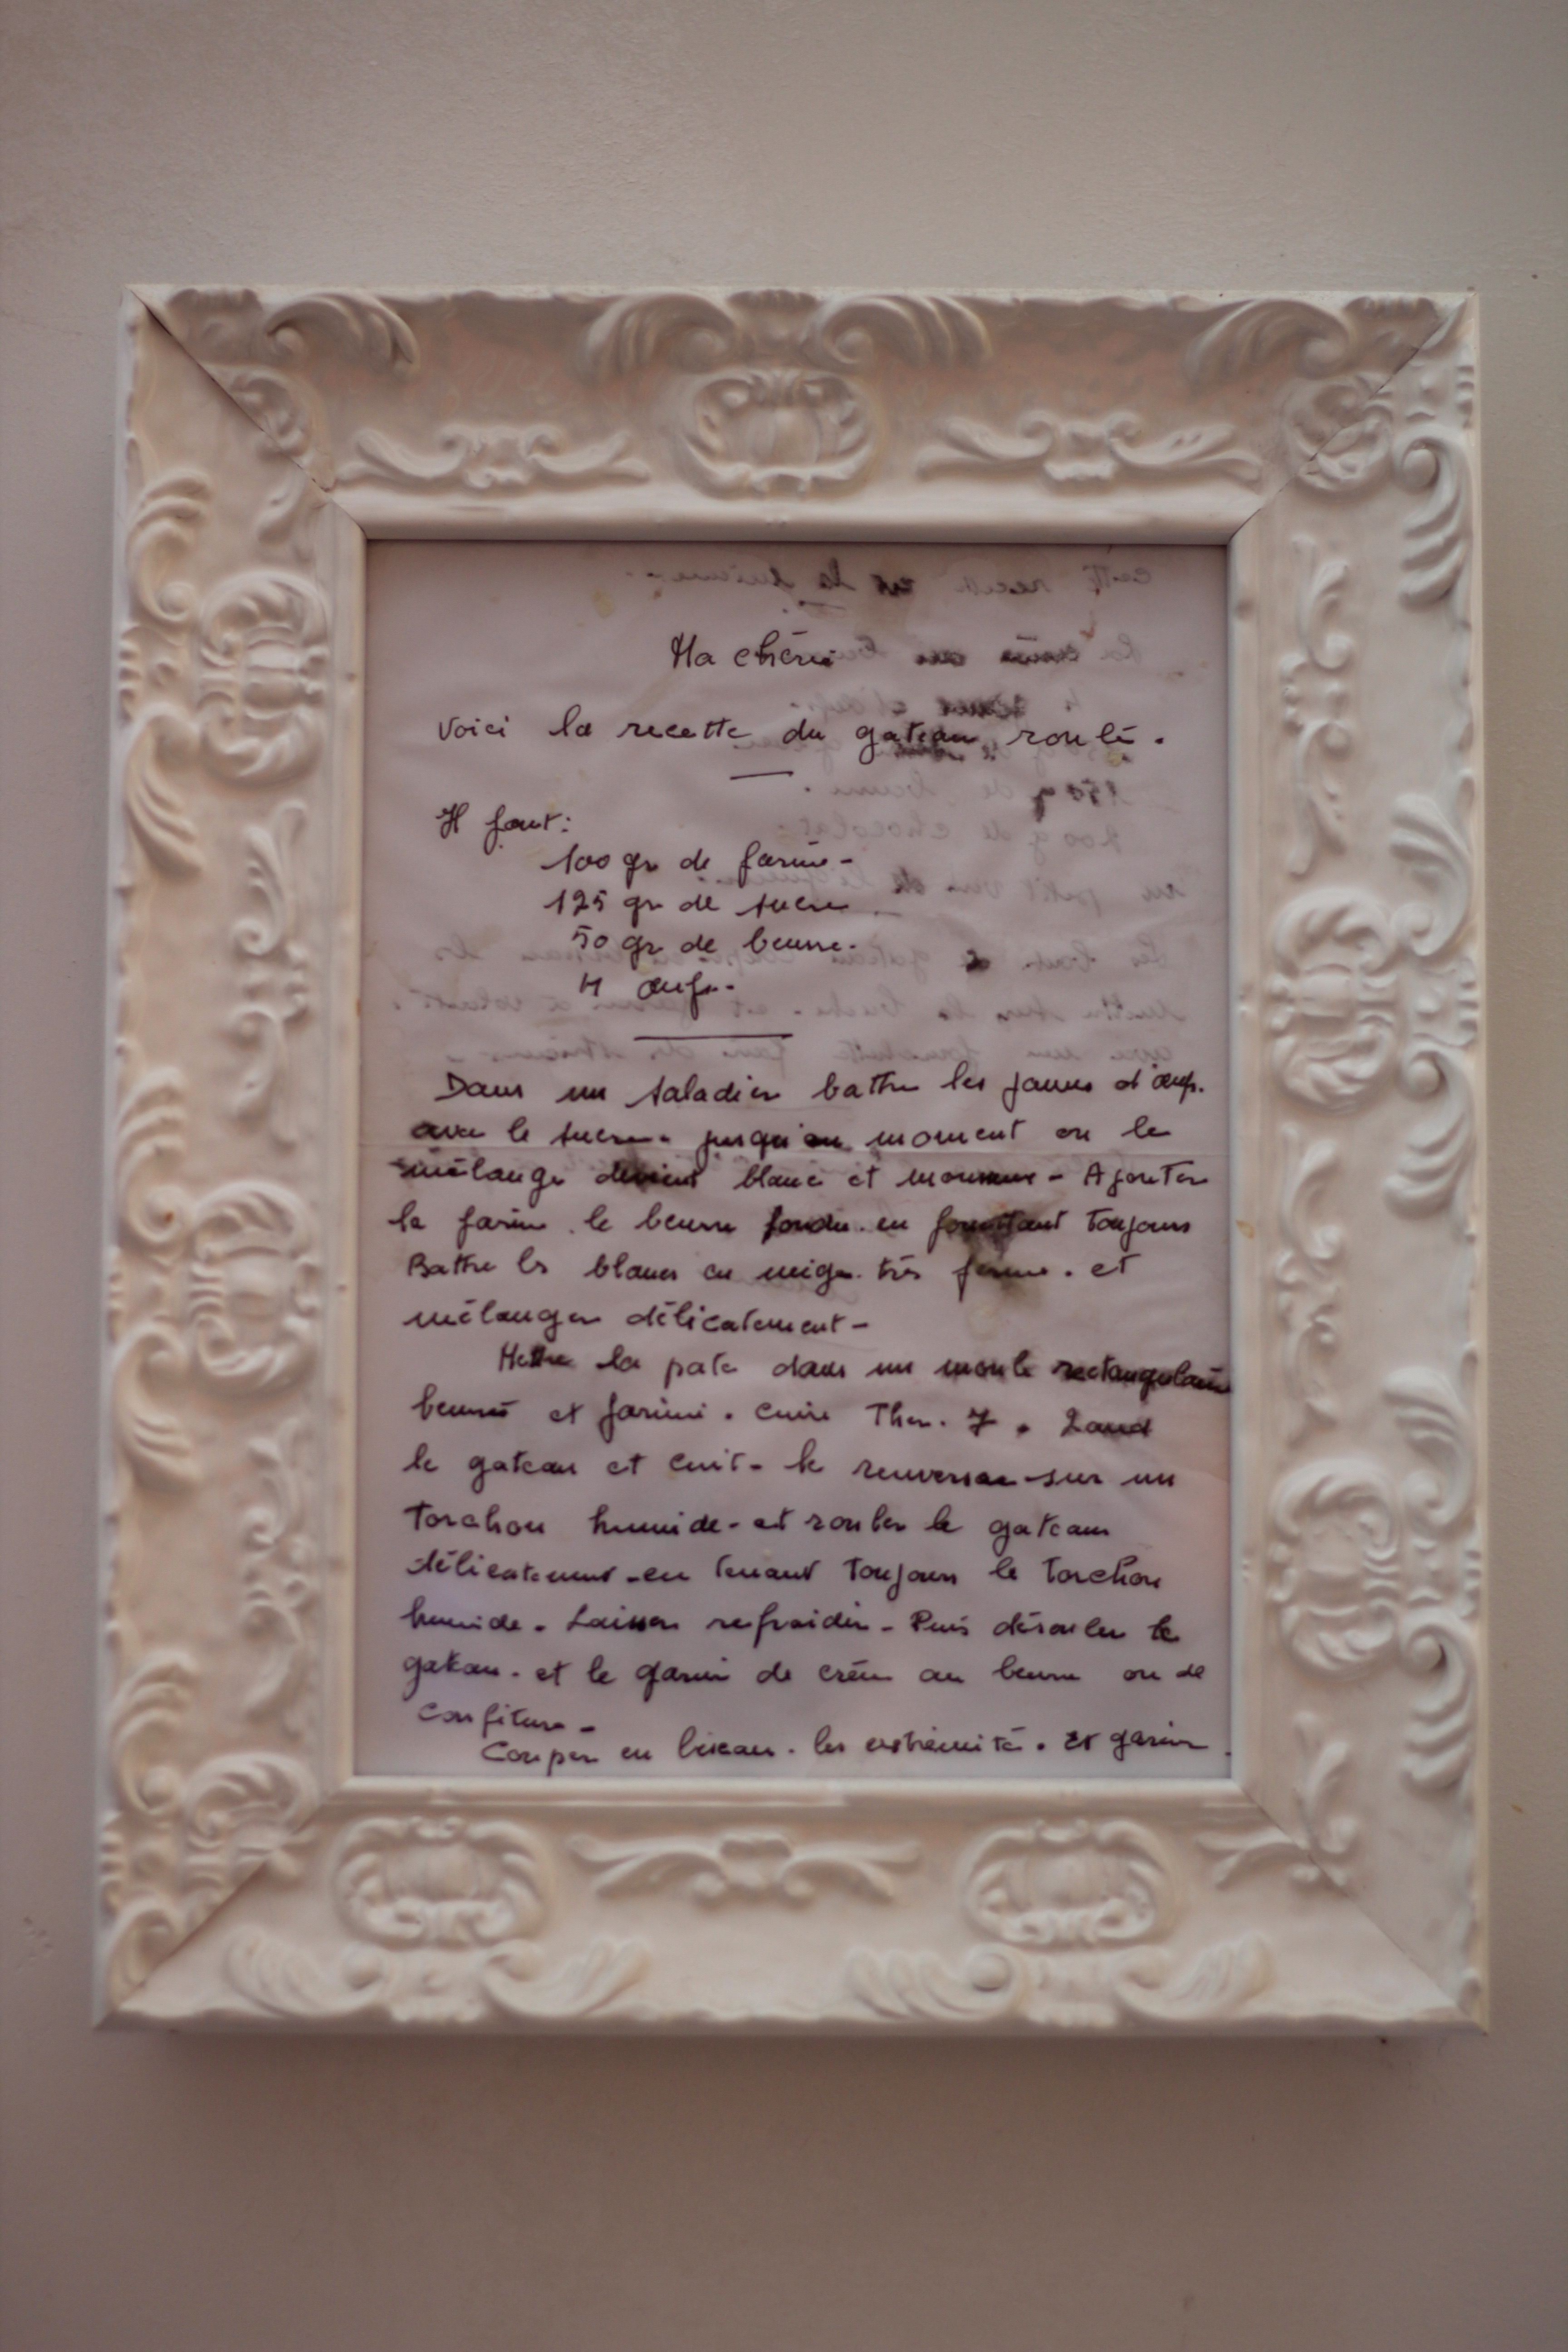 Ma chérie
Voici la recette du gateau roulé.
Il faut:
100 gr de farine-
125 gr de sucre
50 gr de beurre.
4 œufs.
Dans un saladier battre les jaunes d'œufs.
avec le sucre. jusqu'au moment ou le
mélange devient blanc et mousseux - Ajouter
la farine. le beurre fondu. en fouettant toujours
Battre les blancs en neige. très ferme. et
mélanger délicatement -
Mettre la pate dans un moule rectangulaire
beurré et fariné. Cuire Ther. 7. Quand
le gateau et cuit - le renverser sur un
torchon humide - et rouler le gateau
délicatement - en tenant toujours le torchon
humide. Laisser refroidir - Puis dérouler le
gateau. et le garnir de crème au beurre ou de
confiture -
Couper en biseau. les extrémité. et garnir